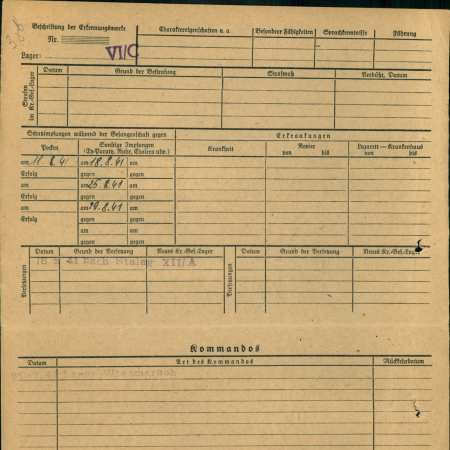 Beschriftung der Erkennungsmarke
Nr.
Charaktereigenschaften u. a.
Besondere Fähigkeiten
Sprachkenntnisse
Führung
Lager: VI/C
Strafen im Kr.-Gef.-Lager
Datum
Grund der Bestrafung
Strafmaß
Verbüßt, Datum
Schutzimpfungen während der Gefangenschaft gegen
Erkrankungen
Pocken
Sonstige Impfungen
(Ty-Paraty, Ruhr, Cholera usw.)
Krankheit
Revier
von bis
Lazarett — Krankenhaus
von bis
am 18.8.41 am 18.8.41 am
Erfolg gegen gegen
am am 25.8.41 am
Erfolg gegen gegen
am am 29.8.41 am
Erfolg gegen gegen
am am
gegen gegen
Versetzungen
Datum
Grund der Versetzung
Neues Kr.-Gef.-Lager
Versetzungen
Datum
Grund der Versetzung
Neues Kr.-Gef.-Lager
41 nach Stalag XII/A
Kommandos
Datum
Art des Kommandos
Rückkehrdatum